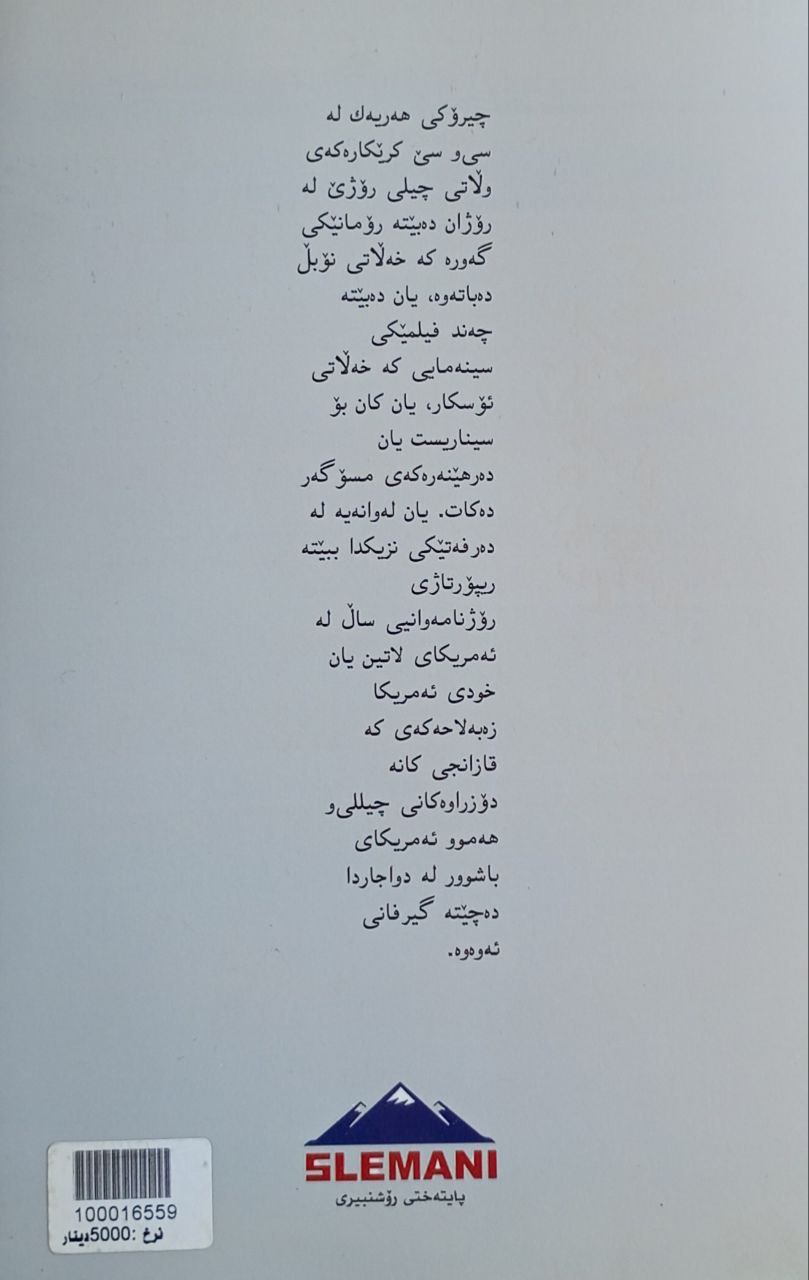 چیرۆکی هەریەك لە
سی‌و سێ کرێکارەکەی
وڵاتی چیلی رۆژێ لە
رۆژان دەبێتە رۆمانێکی
گەورە کە خەڵاتی نۆبڵ
دەباتەوە، یان دەبێتە
چەند فیلمێکی
سینەمایی کە خەڵاتی
ئۆسکار، یان کان بۆ
سیناریست یان
دەرهێنەرەکەی مسۆگەر
دەکات. یان لەوانەیە لە
دەرفەتێکی نزیکدا ببێتە
ریپۆرتاژی
رۆژنامەوانیی ساڵ لە
ئەمریکای لاتین یان
خودی ئەمریکا
زەبەلاحەکەی کە
قازانجی کانە
دۆزراوەکانی چیللی‌و
هەموو ئەمریکای
باشوور لە دواجاردا
دەچێتە گیرفانی
ئەوەوە.
SLEMANI
پایتەختی رۆشنبیری
100016559
نرخ :5000دینار